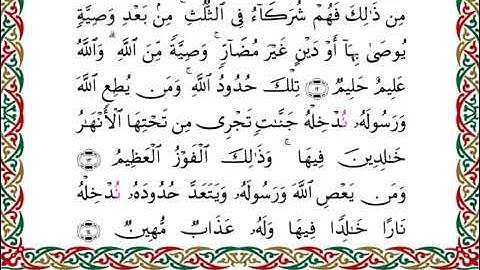 مِن ذَٰلِكَ فَهُمْ شُرَكَآءُ فِى ٱلثُّلُثِ ۚ مِنۢ بَعْدِ وَصِيَّةٍ
يُوصَىٰ بِهَآ أَوْ دَيْنٍ غَيْرَ مُضَآرٍّ ۚ وَصِيَّةً مِّنَ ٱللَّهِ ۗ وَٱللَّهُ
عَلِيمٌ حَلِيمٌ ١٢ تِلْكَ حُدُودُ ٱللَّهِ ۚ وَمَن يُطِعِ ٱللَّهَ
وَرَسُولَهُۥ نُدْخِلْهُ جَنَّـٰتٍ تَجْرِى مِن تَحْتِهَا ٱلْأَنْهَـٰرُ
خَـٰلِدِينَ فِيهَا ۚ وَذَٰلِكَ ٱلْفَوْزُ ٱلْعَظِيمُ ١٣
وَمَن يَعْصِ ٱللَّهَ وَرَسُولَهُۥ وَيَتَعَدَّ حُدُودَهُۥ نُدْخِلْهُ
نَارًا خَـٰلِدًا فِيهَا وَلَهُۥ عَذَابٌ مُّهِينٌ ١٤